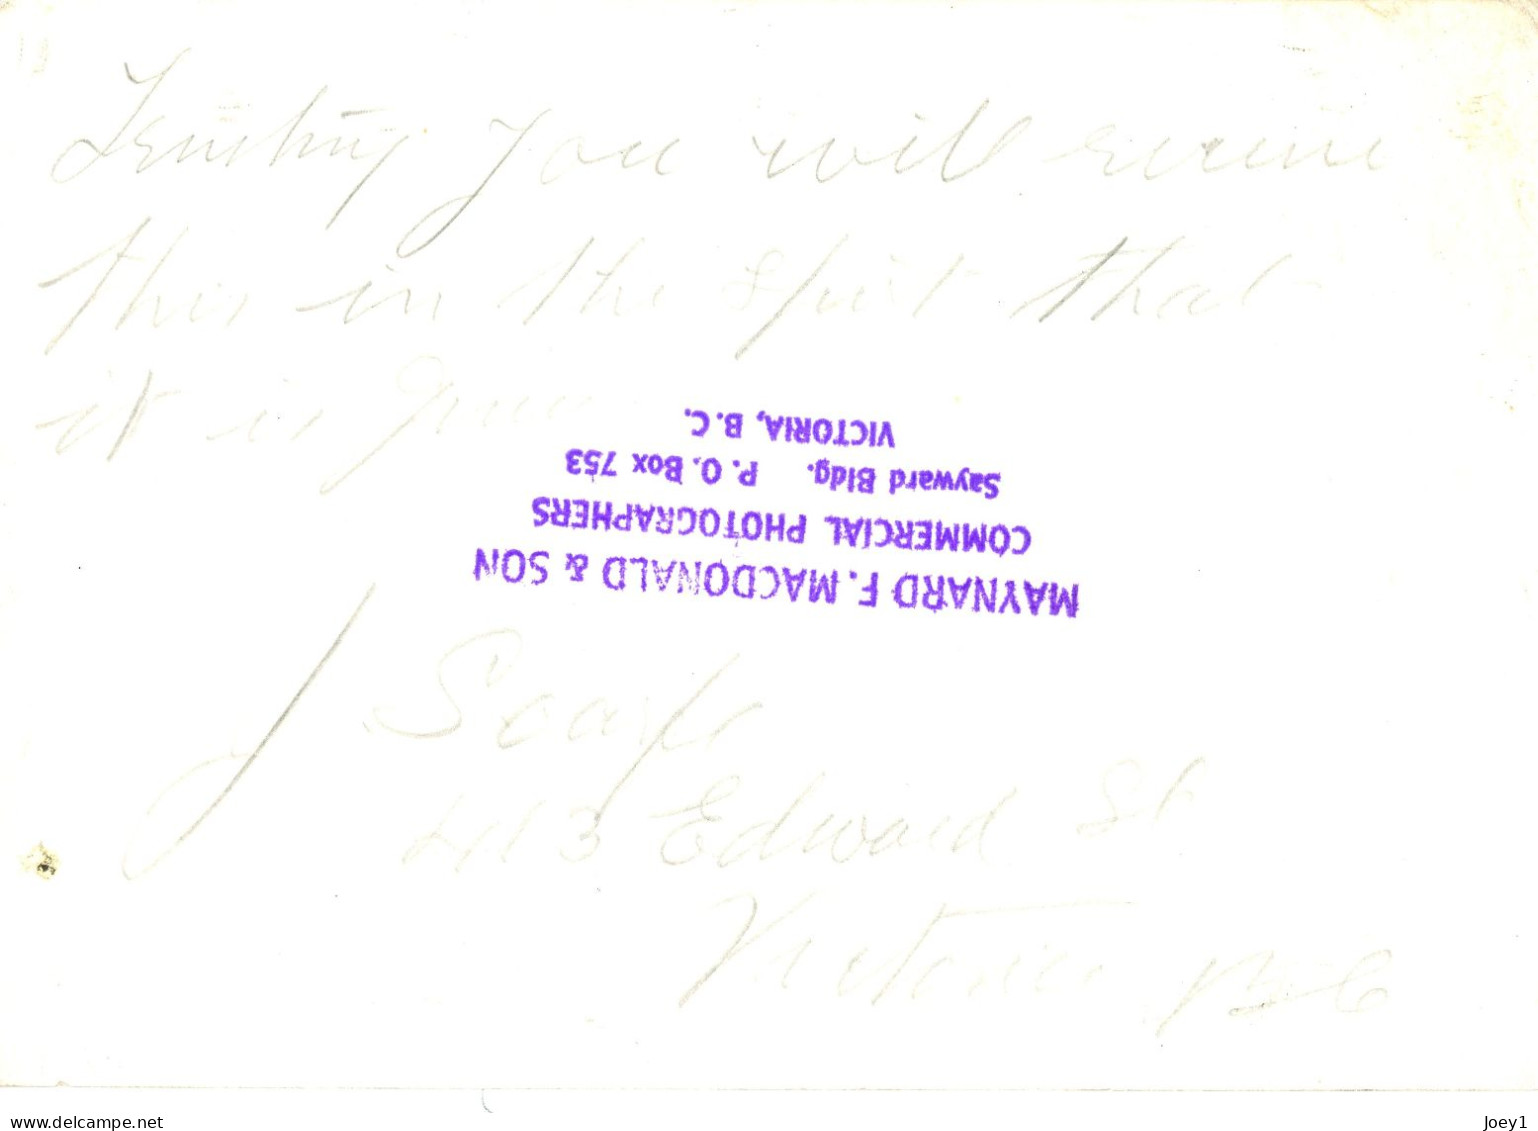 Trusting you will receive
this in the spirit that
it is given
VICTORIA, B.C.
Sayward Bldg. P. O. Box 753
COMMERCIAL PHOTOGRAPHERS
MAYNARD F. MACDONALD & SON
J
413 Edward St
Victoria B C
www.delcampe.net
Joey1